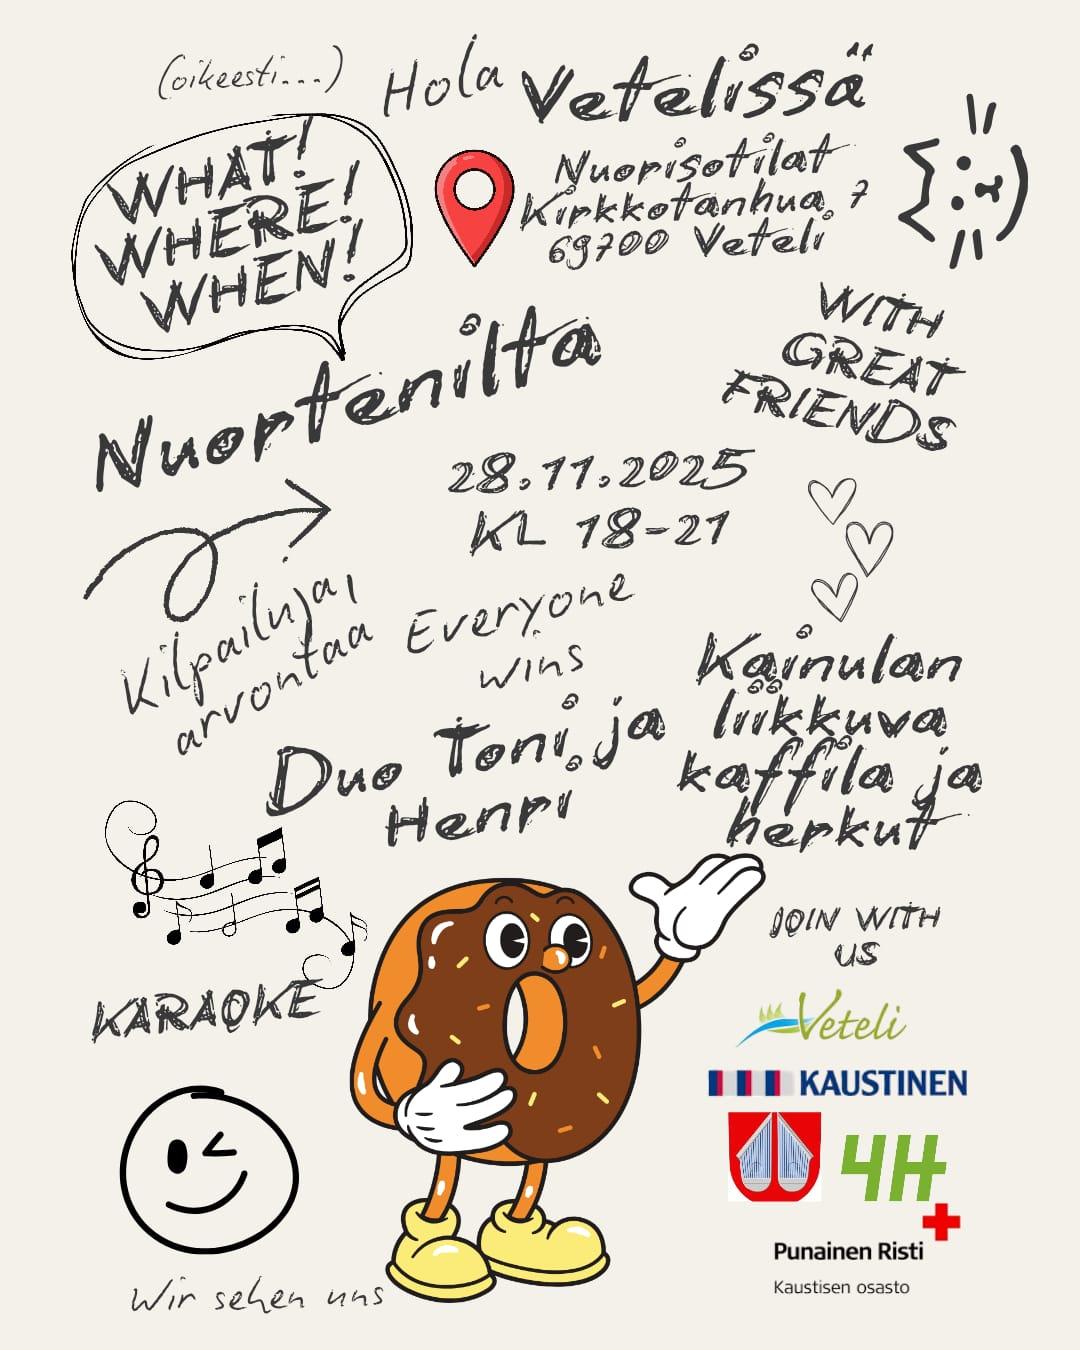 (oikeesti...)
Hola
Vetelissä
WHAT!
WHERE!
WHEN!
Nuorisotilat
Kirkkotanhua 7
69700 Veteli
WITH
GREAT
FRIENDS
Nuortenilta
28.11.2025
KL 18-21
Kilpailuja,
arvontaa
Everyone
wins
Duo Toni ja
Henri
Kainulan
liikkuva
kaffila ja
herkut
KARAOKE
JOIN WITH
US
Veteli
KAUSTINEN
4H
Punainen Risti
Kaustisen osasto
Wir sehen uns